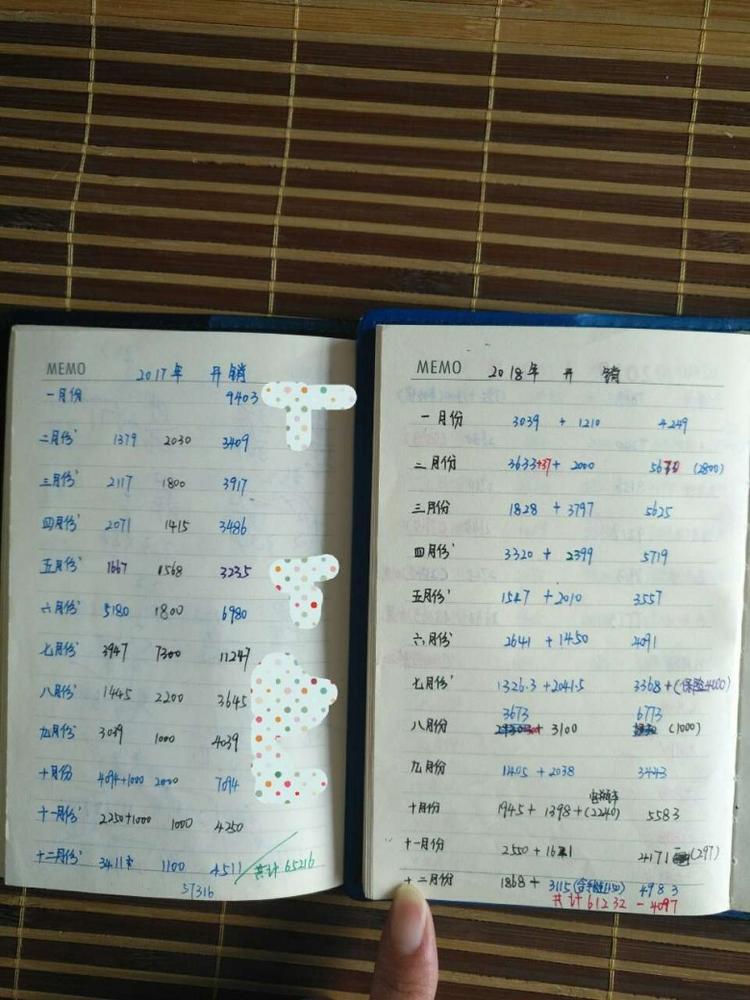 MEMO
2017年 开销
一月份 9403
二月份 1379 2030 3409
三月份 2117 1800 3917
四月份 2071 1415 3486
五月份 1667 1568 3235
六月份 5180 1800 6980
七月份 3947 7300 11247
八月份 1445 2200 3645
九月份 3039 1000 4039
十月份 4094+1000 2000 7094
十一月份 2250+1000 1000 4250
十二月份 3411 1100 4511 共计65216
57316
MEMO
2018年 开销
一月份 3039 + 1210 4249
二月份 3633+37+ 2000 5670 (2800)
三月份 1828 + 3797 5625
四月份 3320 + 2399 5719
五月份 1547 + 2010 3557
六月份 2641 + 1450 4091
七月份 1326.3 +2041.5 3368+(保险4000)
3673 6773
八月份 3100 (1000)
九月份 1405 + 2038 3443
十月份 1945+ 1398+(2240) 5583
十一月份 2550+1621 4171 (297)
十二月份 1868+ 3115 4983
共计61232 -4097